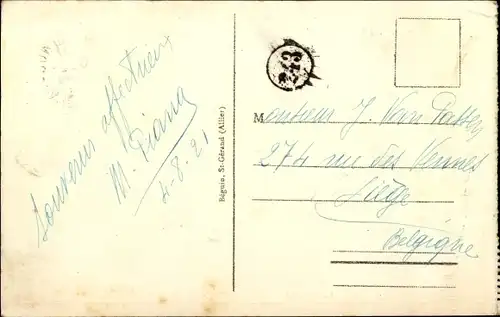 Souvenir affectueux
M. Piana
4-8.21
Béguin, St-Gérand (Allier)
243
Monsieur J. Van Passey
274 rue des Vennes
Liège
Belgique